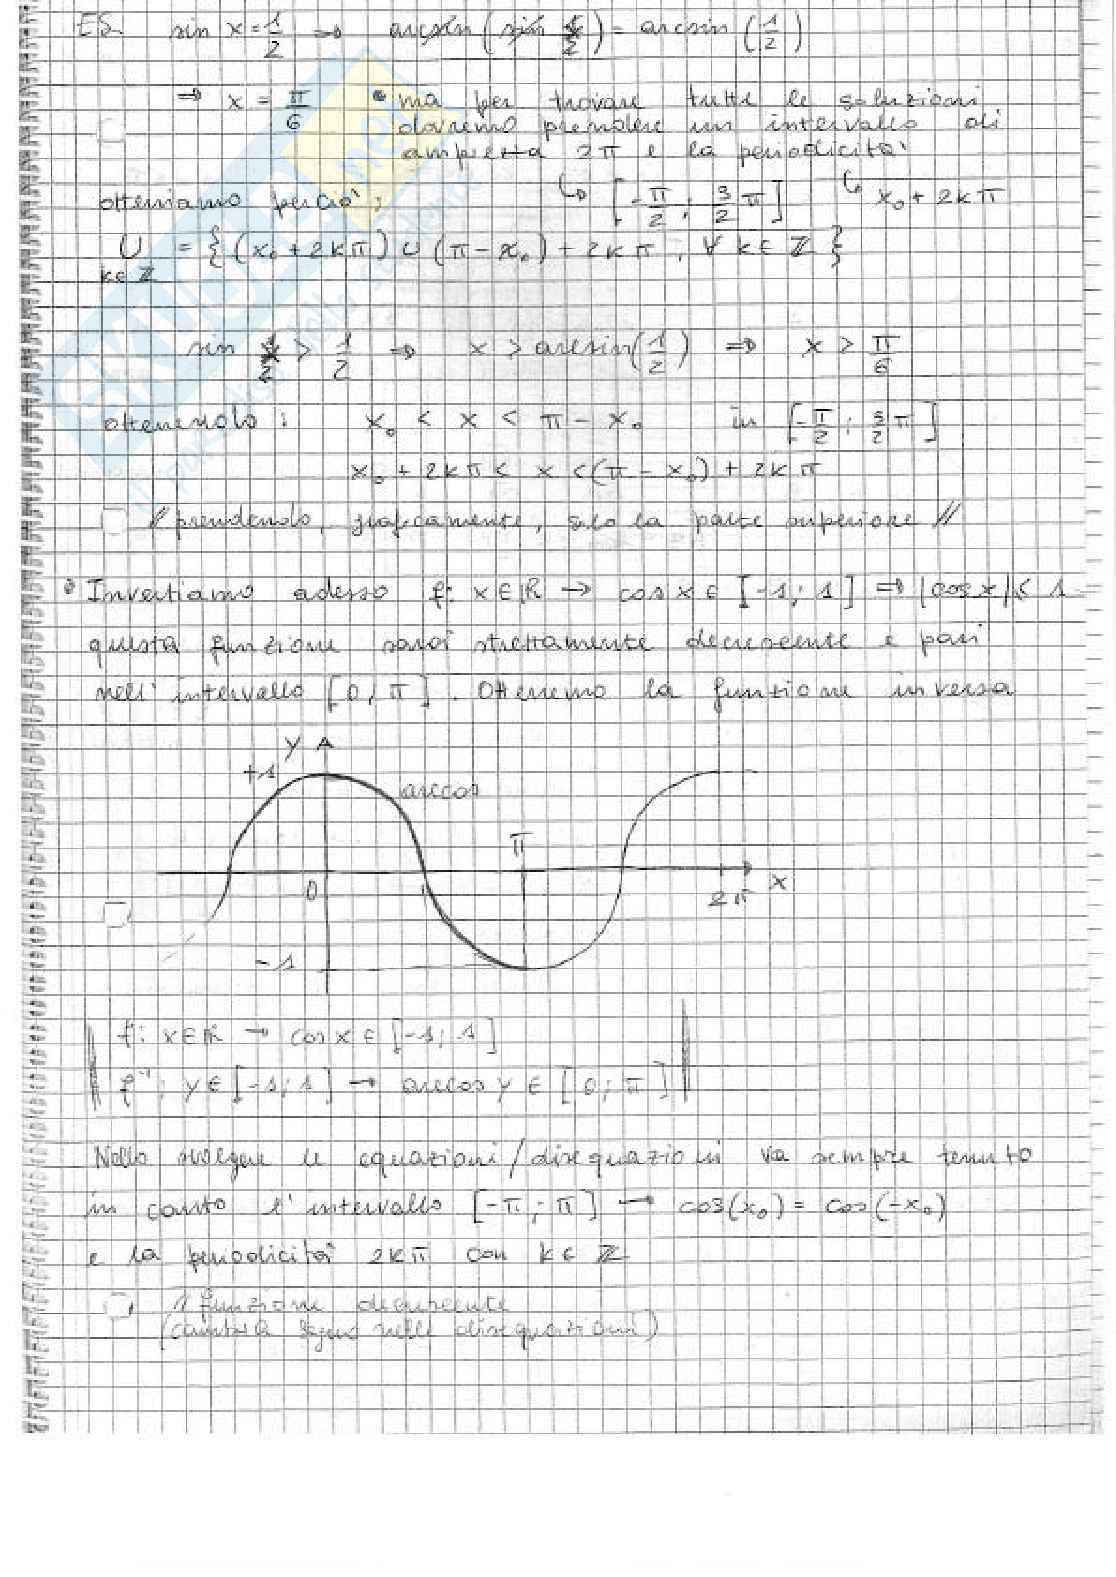 ES. sin x = 1/2 ⇒ arcsin (sin x) = arcsin (1/2)
⇒ x = π/6 • ma per trovare tutte le soluzioni
dovremo prendere un intervallo di
ampiezza 2π e la periodicità
↳ [-π/2 ; 3/2 π] ↳ x₀ + 2kπ
otteniamo perciò:
∪ k∈ℤ = { (x₀ + 2kπ) ∪ (π - x₀) + 2kπ, ∀ k∈ℤ }
sin x > 1/2 ⇒ x > arcsin (1/2) ⇒ x > π/6
ottenendo: x₀ < x < π - x₀ in [-π/2 ; 3/2 π]
x₀ + 2kπ < x < (π - x₀) + 2kπ
// prendendo, graficamente, solo la parte superiore //
• Invertiamo adesso f: x∈ℝ → cos x ∈ [-1; 1] ⇒ |cos x| ≤ 1
questa funzione sarà strettamente decrescente e pari
nell'intervallo [0; π]. Otteremo la funzione inversa
y
+1
arccos
π
0
x
2π
-1
f: x∈ℝ → cos x ∈ [-1; 1]
f⁻¹: y∈ [-1; 1] → arccos y ∈ [0; π]
Nello svolgere le equazioni/disequazioni va sempre tenuto
in conto l'intervallo [-π; π] → cos(x₀) = cos(-x₀)
e la periodicità 2kπ con k∈ℤ
funzione decrescente
(cambia segno nelle disequazioni)